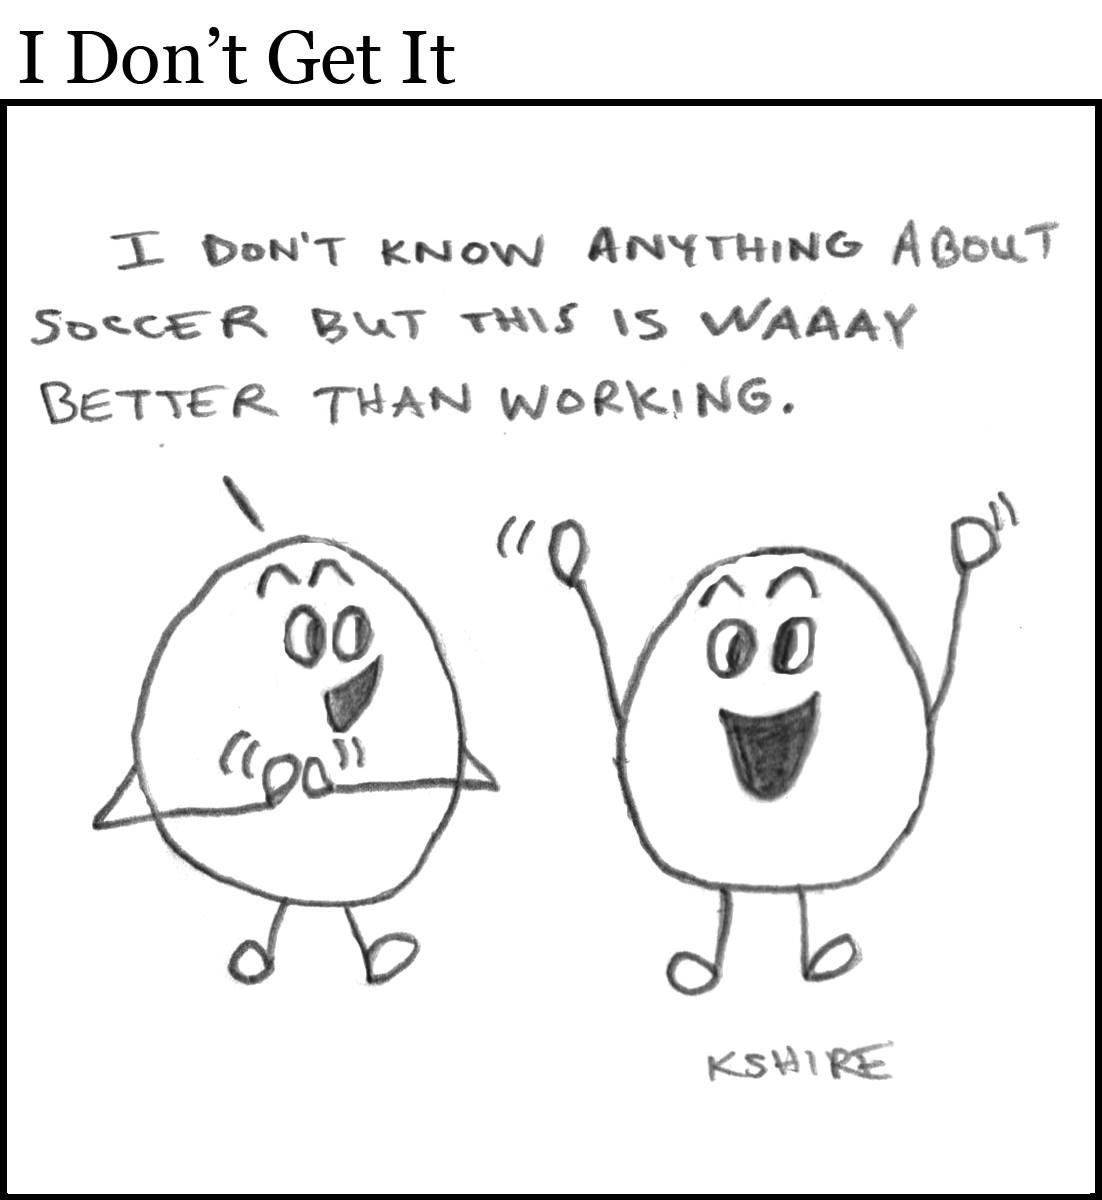 I Don’t Get It
I DON'T KNOW ANYTHING ABOUT
SOCCER BUT THIS IS WAAAY
BETTER THAN WORKING.
KSHIRE